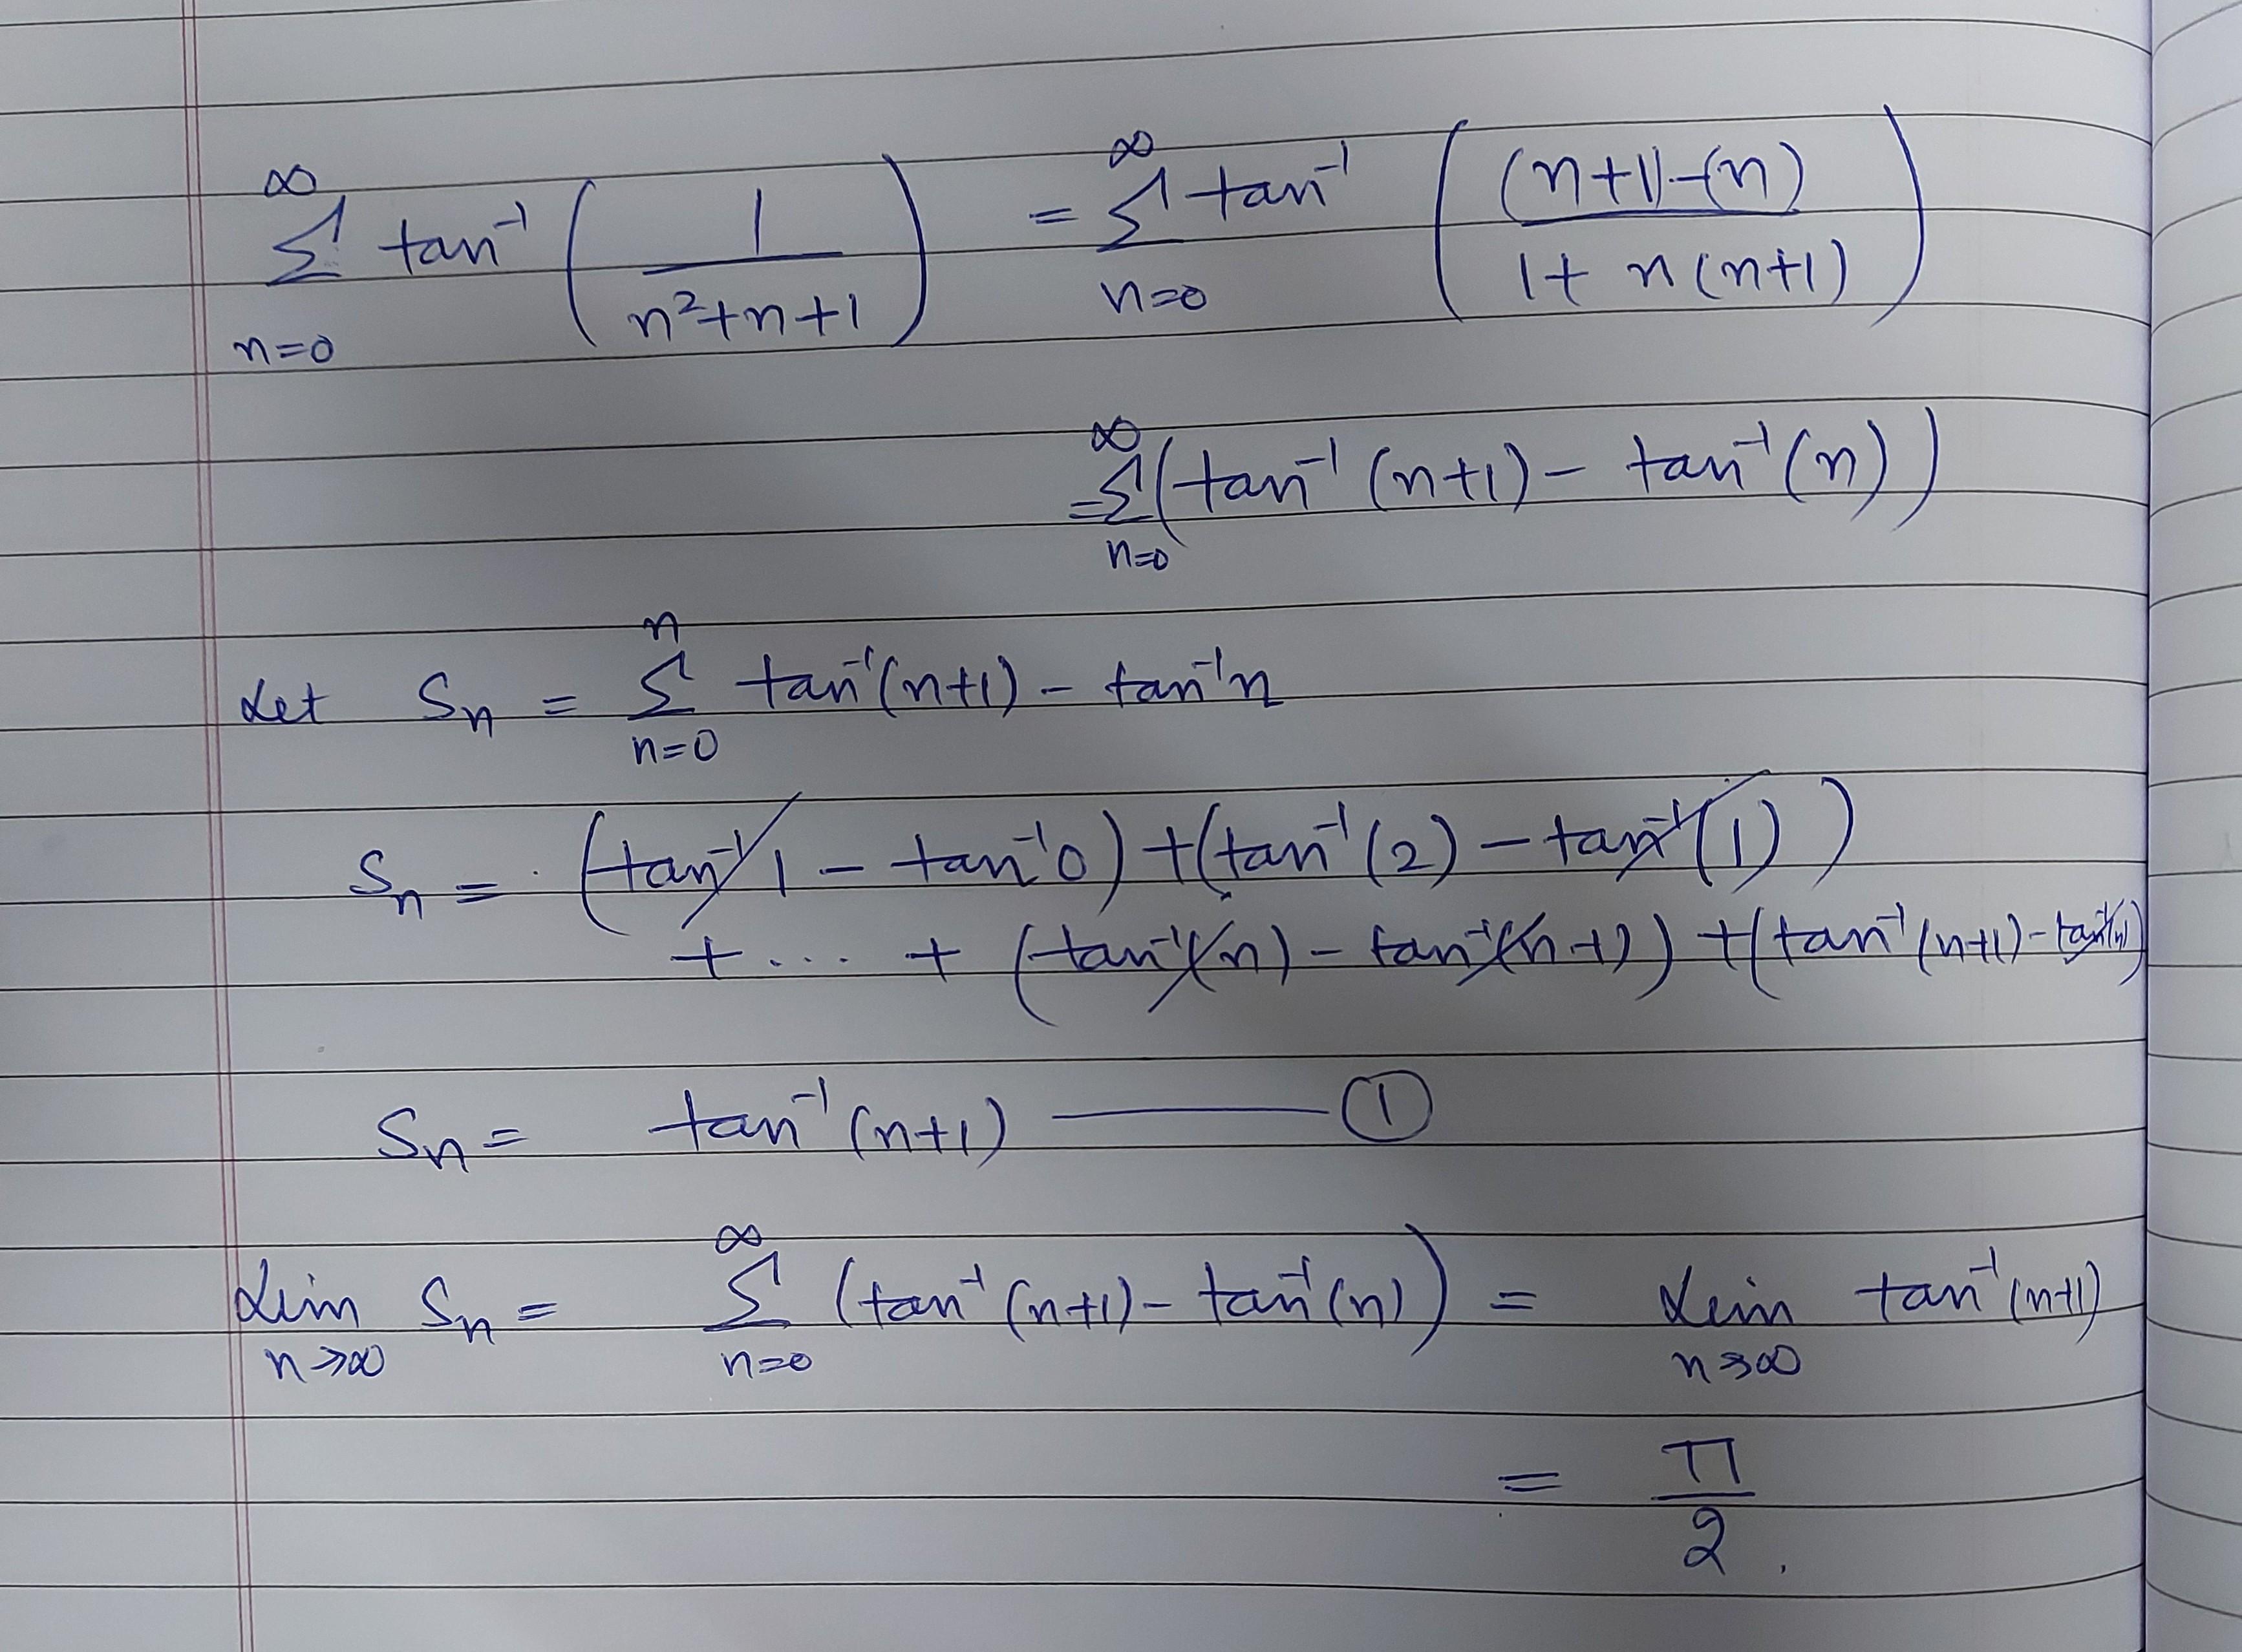 ∞∑n=0 tan⁻¹(1/(n²+n+1)) = ∞∑n=0 tan⁻¹(((n+1)-(n))/(1+n(n+1)))
= ∞∑n=0 (tan⁻¹(n+1) - tan⁻¹(n))
Let Sn = n∑n=0 tan⁻¹(n+1) - tan⁻¹n
Sn = (tan⁻¹1 - tan⁻¹0) + (tan⁻¹(2) - tan⁻¹(1))
+ ... + (tan⁻¹(n) - tan⁻¹(n-1)) + (tan⁻¹(n+1) - tan⁻¹(n))
Sn = tan⁻¹(n+1) —— ①
Lim n→∞ Sn = ∞∑n=0 (tan⁻¹(n+1) - tan⁻¹(n)) = Lim n→∞ tan⁻¹(n+1)
= π/2.